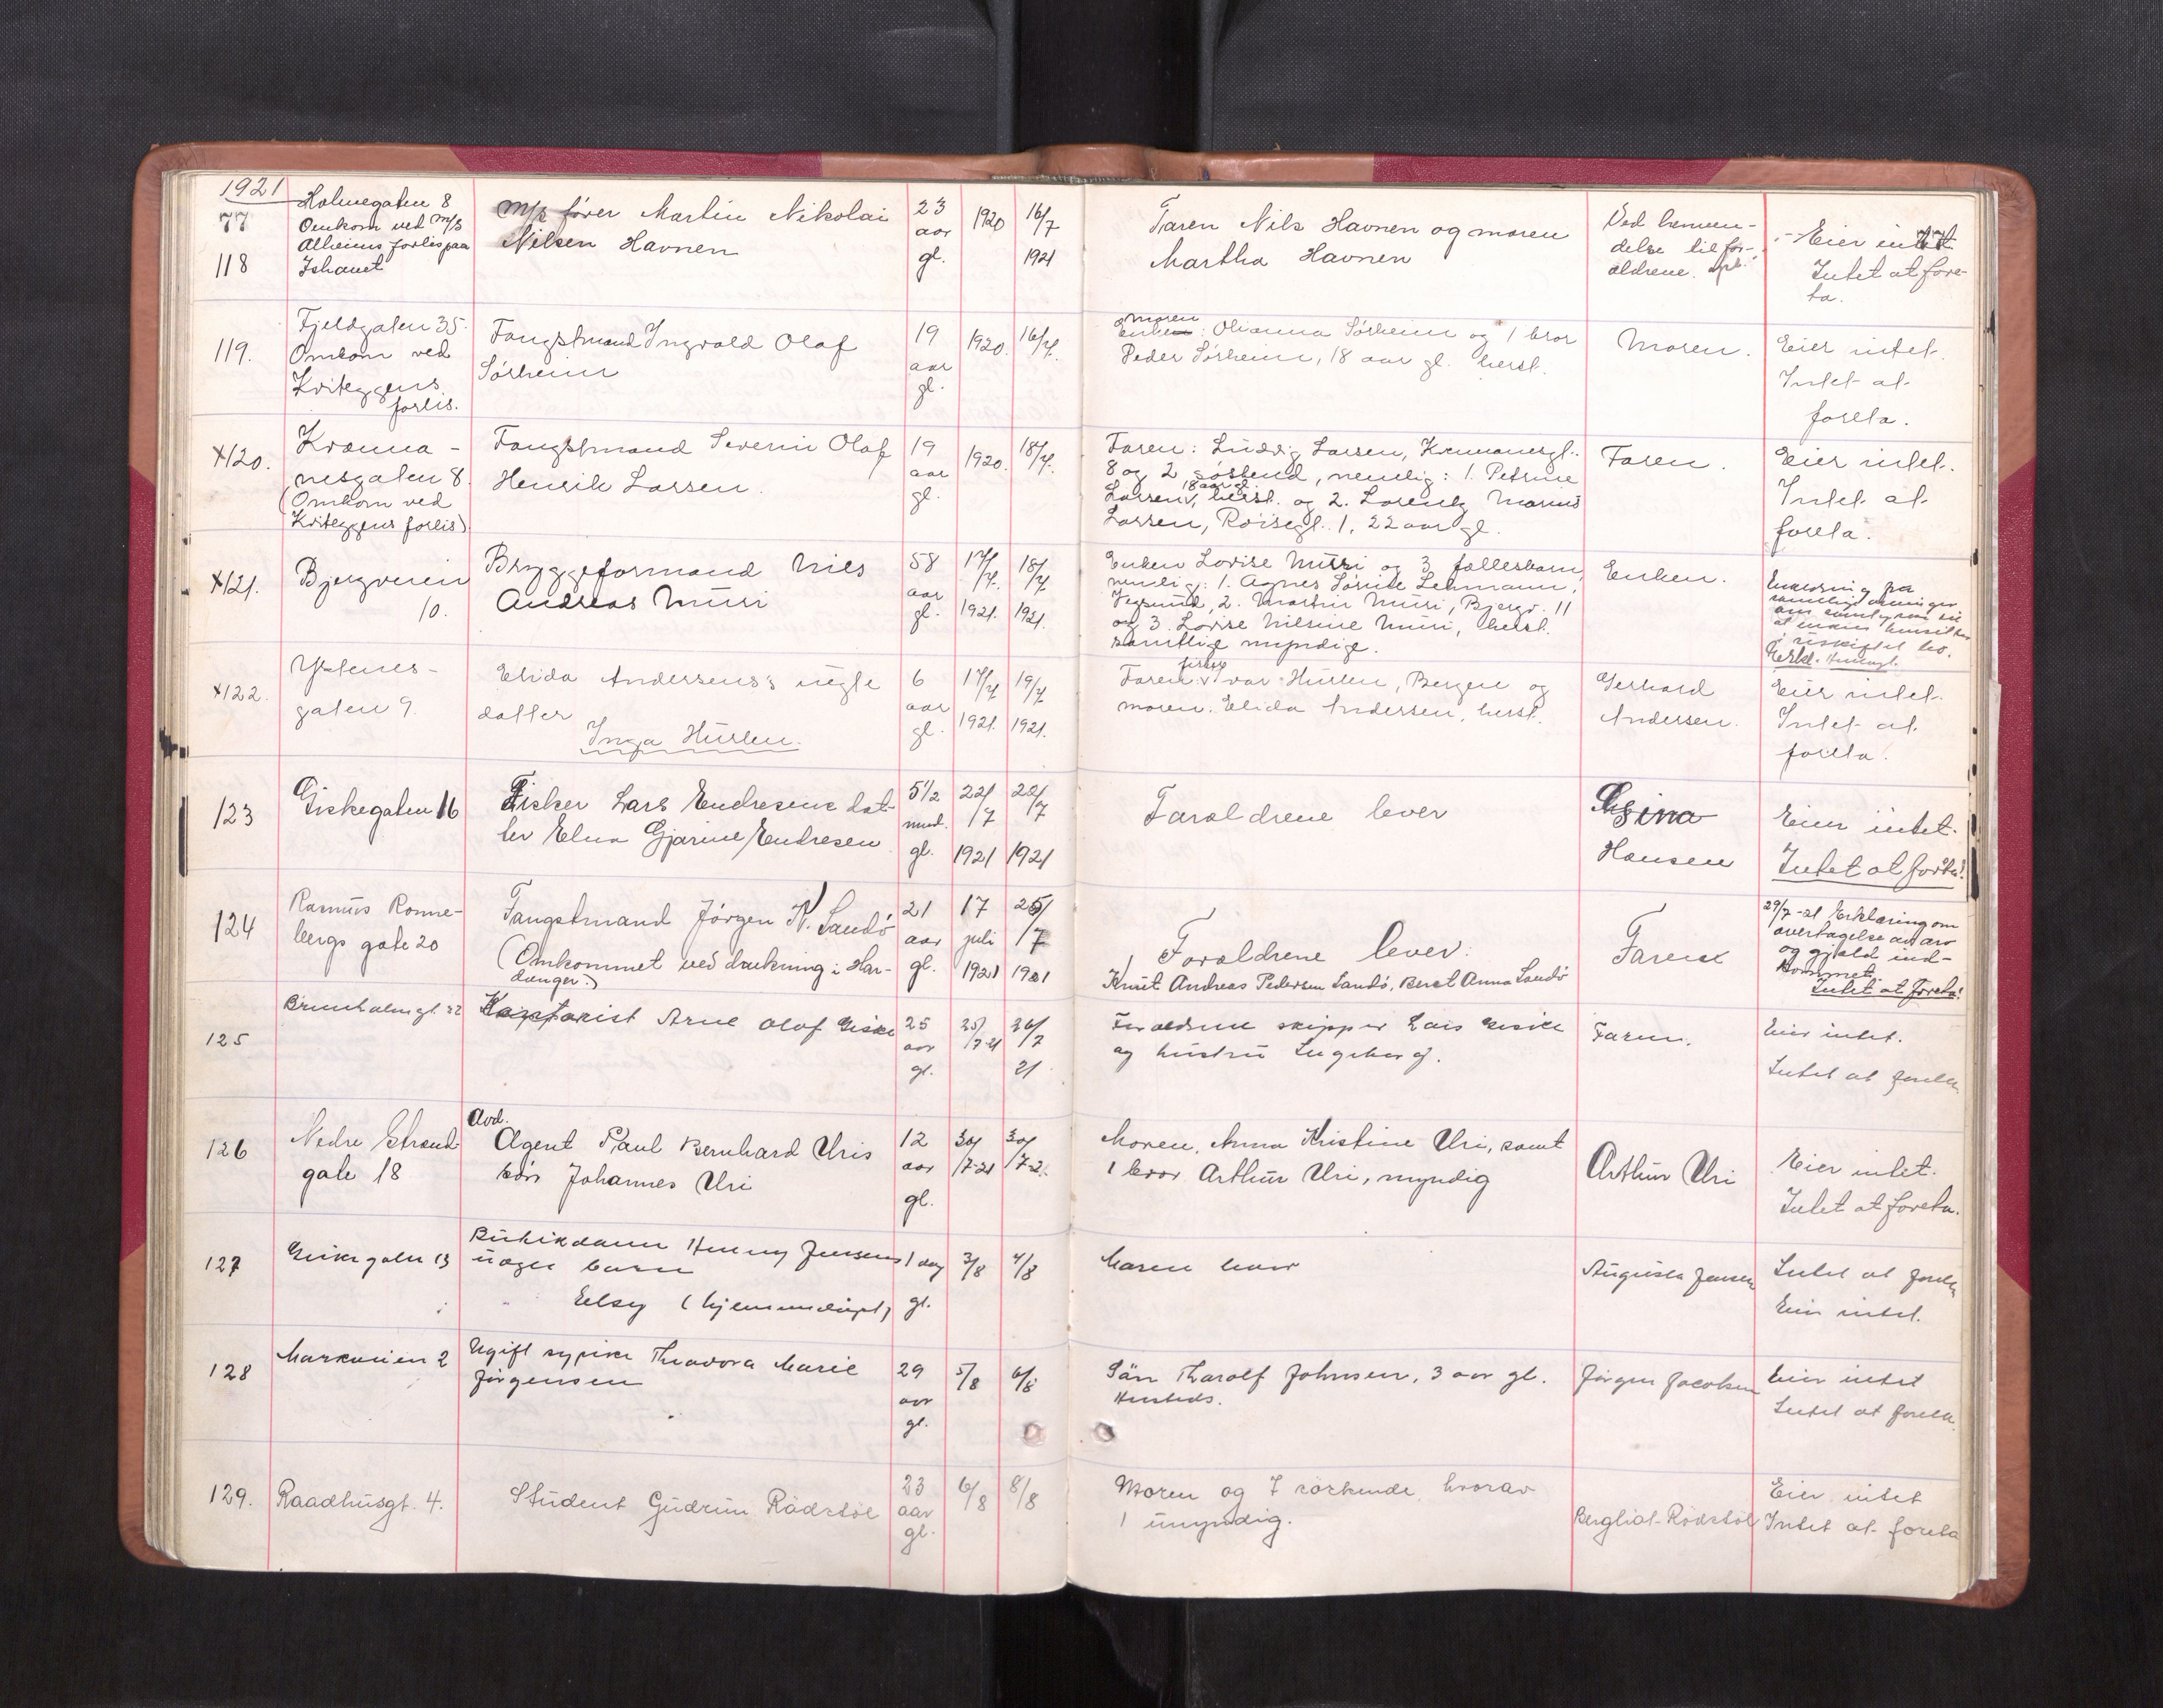 1921
77
118
Holmegaten 8
Omkom ved m/s
Alheims forlis paa
Ishavet
M/k fører Martin Nikolai
Nilsen Havnen
23
aar
gl.
1920
16/7
1921
Faren Nils Havnen og moren
Martha Havnen
Ved henven-
delse til for-
ældrene.
Eier intet.
77
Intet at fore-
ta.
119.
Fjeldgaten 35.
Omkom ved
Kviteggens
forlis.
Fangstmand Ingvald Olaf
Sörheim
19
aar
gl.
1920.
16/7.
moren
Enken: Olianna Sörheim og 1 bror
Peder Sörheim, 18 aar gl. herst.
Moren.
Eier intet.
Intet at
foreta.
x120.
Kranna-
nesgaten 8.
(Omkom ved
Kviteggens forlis)
Fangstmand Severin Olaf
Henrik Larsen.
19
aar
gl.
1920.
18/7.
Faren: Ludvig Larsen, Krananesgt.
8 og 2 söskend, nemlig: 1. Petrine
18 aar gl.
Larsen, herst. og 2. Lorentz Marius
Larsen, Röisegt. 1, 22 aar gl.
Faren.
Eier intet.
Intet at
foreta.
x121.
Bjergveien
10.
Bryggeformand Nils
Andreas Muri
58
aar
gl.
17/7.
1921.
18/7.
1921.
Enken Lovise Muri og 3 fællesbarn,
nemlig: 1. Agnes Sörine Lehmann,
Vegsund, 2. Martin Muri, Bjergv. 11
og 3. Lovise Nilsine Muri, herst.
samtlige myndige.
Enken.
fra
samtlige arvinger
om samtykke til
at enken hensitter
i uskiftet bo.
x122.
Ystenes-
gaten 9.
Elida Andersens's uegte
datter
Inga Hurlen.
6
aar
gl.
17/7
1921.
19/7
1921.
Faren: Ivar Hurlen, Bergen og
moren: Elida Andersen, herst.
Gerhard
Andersen.
Eier intet.
Intet at
foreta.
123
Giskegaten 16
Fisker Lars Endresens dat-
ter Elna Gjarine Endresen
5 1/2
mnd.
gl.
22/7
1921
22/7
1921
Forældrene lever
Gina
Hansen
Eier intet.
Intet at foreta!
124
Rasmus Rønne-
bergs gate 20
Fangstmand Jörgen K. Sandö
(Omkommet ved drukning i Har-
danger.)
21
aar
gl.
17
juli
1921
25/7
1921
Forældrene lever.
Knut Andreas Pedersen Sandö, Beret Anna Sandö
Faren
29/7-21 Erklæring om
overtagelse av arv
og gjæld ind-
kommet.
Intet at foreta!
125
Brunholmgt. 22
Kontorist Arne Olaf Giske
25
aar
gl.
25/7-21
26/7
21
Forældrene skipper Lars Giske
og hustru Ingeborg.
Faren.
Eier intet.
Intet at foreta
126
Nedre Strand-
gate 18
Avd.
Agent Paul Bernhard Uris
sön Johannes Uri
12
aar
gl.
30/7-21
30/7-21
Moren, Anna Kristine Uri, samt
1 bror Arthur Uri, myndig
Arthur Uri
Eier intet.
Intet at foreta.
127
Giskegaten 13
Butikdame Henny Jensens
uegte barn
Elsy (hjemmedöpt)
1 dag
gl.
3/8
4/8
Moren lever
Augusta Jensen
Intet at foreta
Eier intet.
128
Markveien 2
Ugift sypike Theodora Marie
Jörgensen
29
aar
gl.
5/8
6/8
Sön Tharolf Johnsen, 3 aar gl.
Hersteds.
Jörgen Jacobsen
Eier intet
Intet at foreta
129.
Raadhusgt. 4.
Student Gudrun Rödstöl
23
aar
gl.
6/8
8/8
Moren og 7 söskende, hvorav
1 umyndig.
Bergliot Rödstöl
Eier intet
Intet at foreta